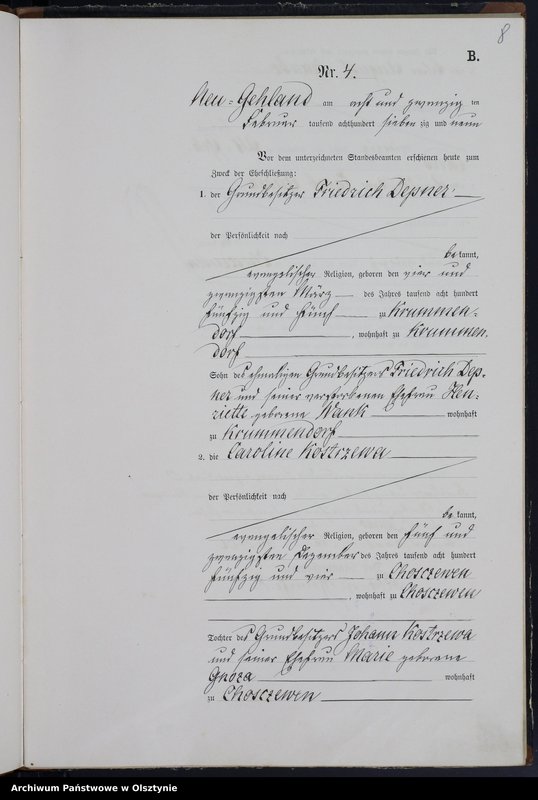 8
B.
Nr. 4.
Neu-Gehland am acht und zwanzig ten
Februar tausend achthundert sieben zig und neun
Vor dem unterzeichneten Standesbeamten erschienen heute zum
Zweck der Eheschließung:
1. der Grundbesitzer Friedrich Depner
der Persönlichkeit nach
be kannt,
evangelischer Religion, geboren den vier und
zwanzigsten März des Jahres tausend acht hundert
fünfzig und fünf zu Krummen-
dorf, wohnhaft zu Krummen-
dorf
Sohn des ehemaligen Grundbesitzers Friedrich Dep-
ner und seiner verstorbenen Ehefrau Hen-
riette geborene Wank wohnhaft
zu Krummendorf
2. die Caroline Kostrzewa
der Persönlichkeit nach
be kannt,
evangelischer Religion, geboren den fünf und
zwanzigsten Dezember des Jahres tausend acht hundert
fünfzig und vier zu Chosczewen
, wohnhaft zu Chosczewen
Tochter des Grundbesitzers Johann Kostrzewa
und seiner Ehefrau Marie geborene
Gnoza wohnhaft
zu Chosczewen
Archiwum Państwowe w Olsztynie